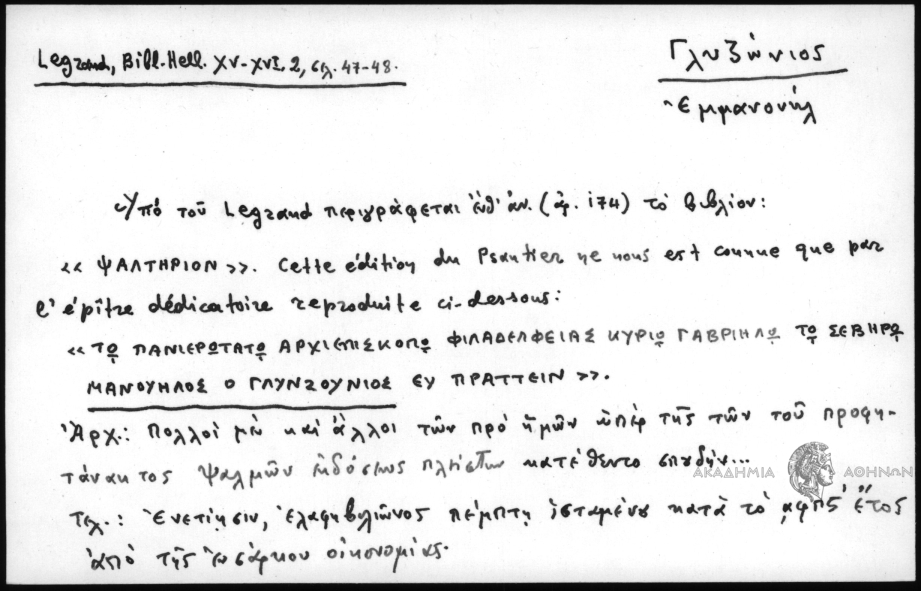 Legrand, Bibl. Hell. XV-XVI. 2, σελ. 47-48.
Γλυζώνιος
Ἐμμανουήλ
Ὑπό τοῦ Legrand περιγράφεται ἐνθ' ἀν. (ἀρ. 174) τὸ βιβλίον:
«ΨΑΛΤΗΡΙΟΝ». Cette édition du Psautier ne nous est connue que par
l'épître dédicatoire reproduite ci-dessous:
«ΤΩ ΠΑΝΙΕΡΩΤΑΤΩ ΑΡΧΙΕΠΙΣΚΟΠΩ ΦΙΛΑΔΕΛΦΕΙΑΣ ΚΥΡΙΩ ΓΑΒΡΙΗΛΩ ΤΩ ΣΕΒΗΡΩ
ΜΑΝΟΥΗΛΟΣ Ο ΓΛΥΝΖΟΥΝΙΟΣ ΕΥ ΠΡΑΤΤΕΙΝ».
Ἀρχ.: Πολλοί μέν καί ἄλλοι τῶν πρό ἡμῶν ὑπέρ τῆς τῶν τοῦ προφη-
τάνακτος ψαλμῶν ἐκδόσεως πλείστην κατέθεντο σπουδήν...
Τελ.: Ἐνετίησιν, ἐλαφηβολιῶνος πέμπτῃ ἱσταμένου κατὰ τὸ ͵αφπϛ' ἔτος
ἀπό τῆς ἐνσάρκου οἰκονομίας.
ΑΚΑΔΗΜΙΑ ΑΘΗΝΩΝ